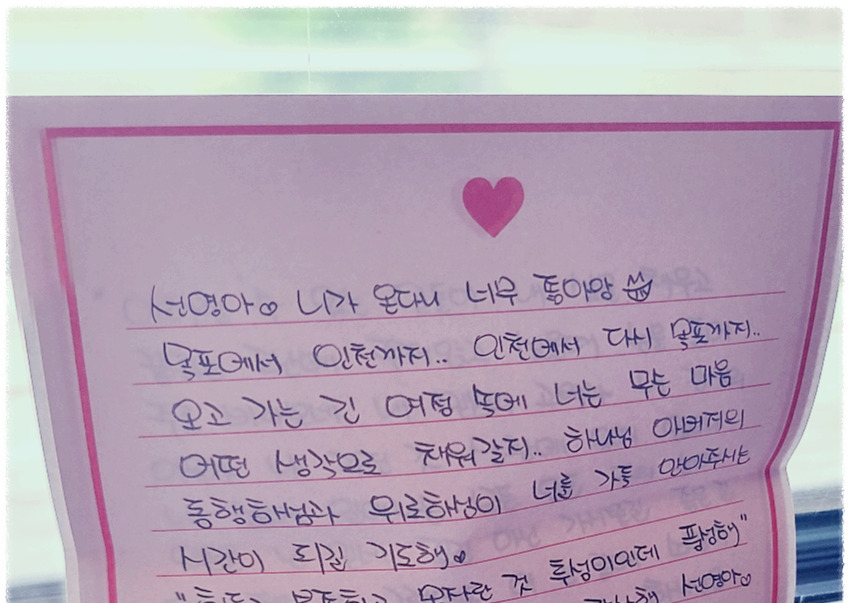 선영아♡ 니가 온다니 너무 좋아앙
목포에서 인천까지.. 인천에서 다시 목포까지..
오고 가는 긴 여정 속에 너는 무슨 마음
어떤 생각으로 채워갈지.. 하나님 아버지의
동행하심과 위로하심이 너를 가득 안아주시는
시간이 되길 기도해♡
부족하고 모자란 것 투성이인데 괜찮해"
선영아♡